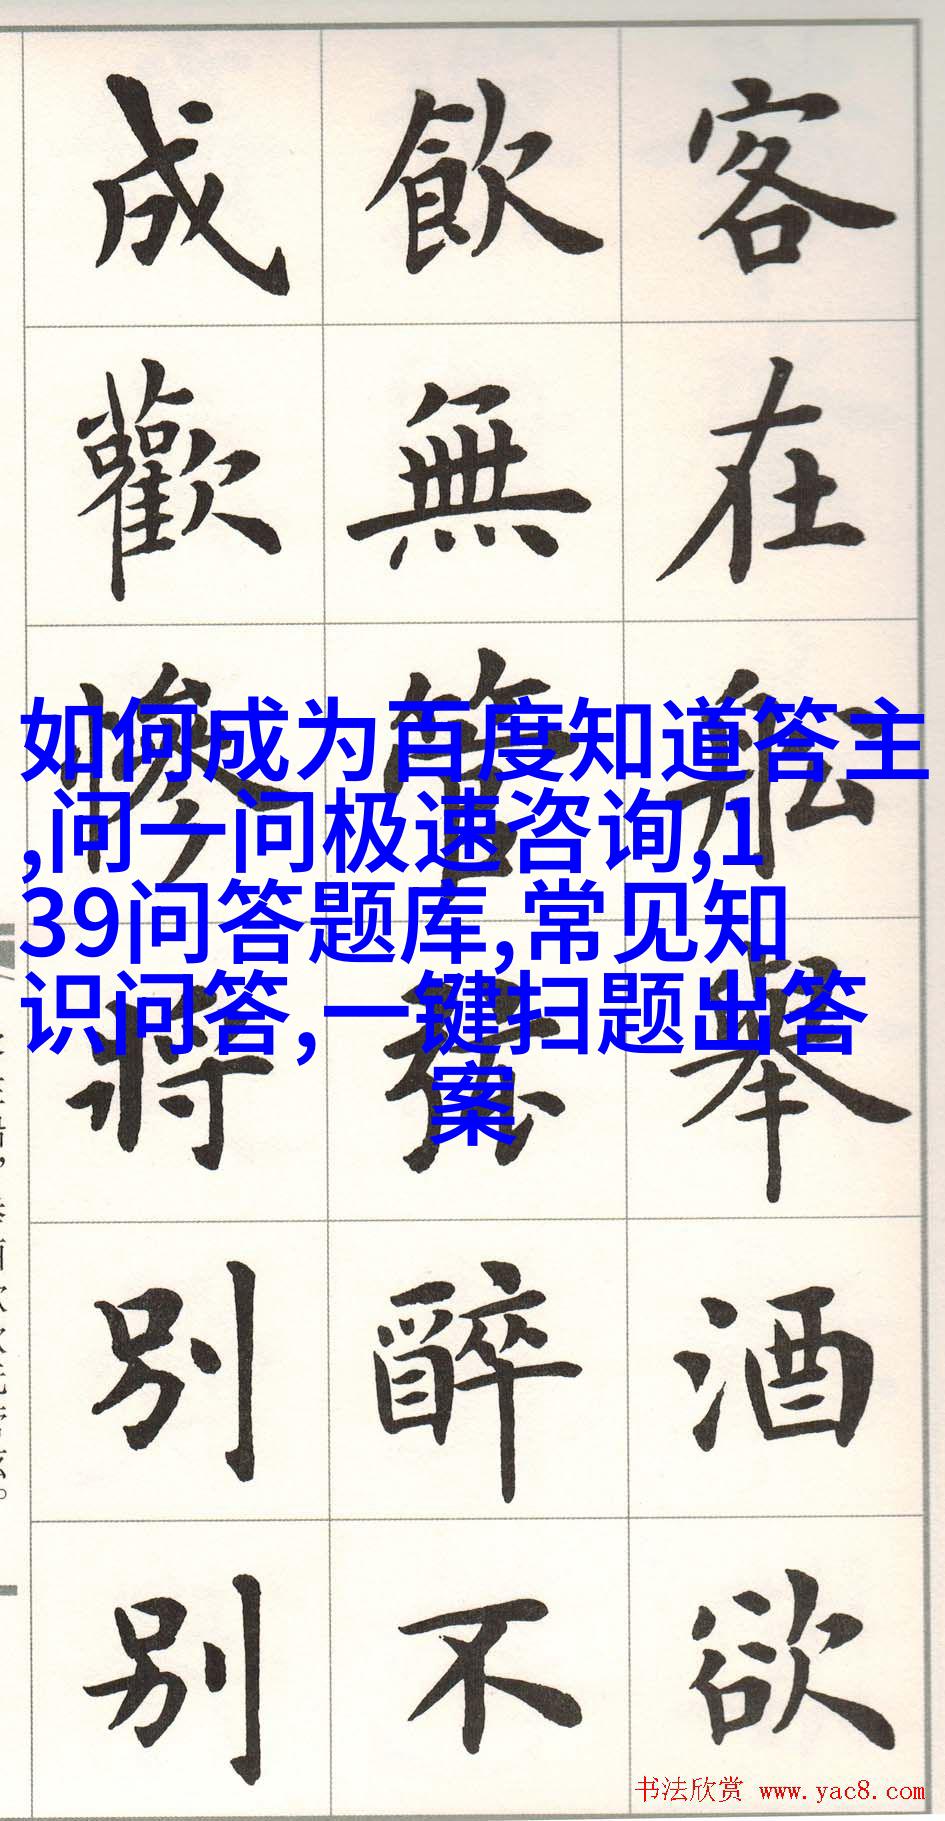 客在舩舉酒欲
飲無管絃醉不
成歡慘將別別
如何成为百度知道答主
,问一问极速咨询,1
39问答题库,常见知
识问答,一键扫题出答
案
书法欣赏 www.yac8.com